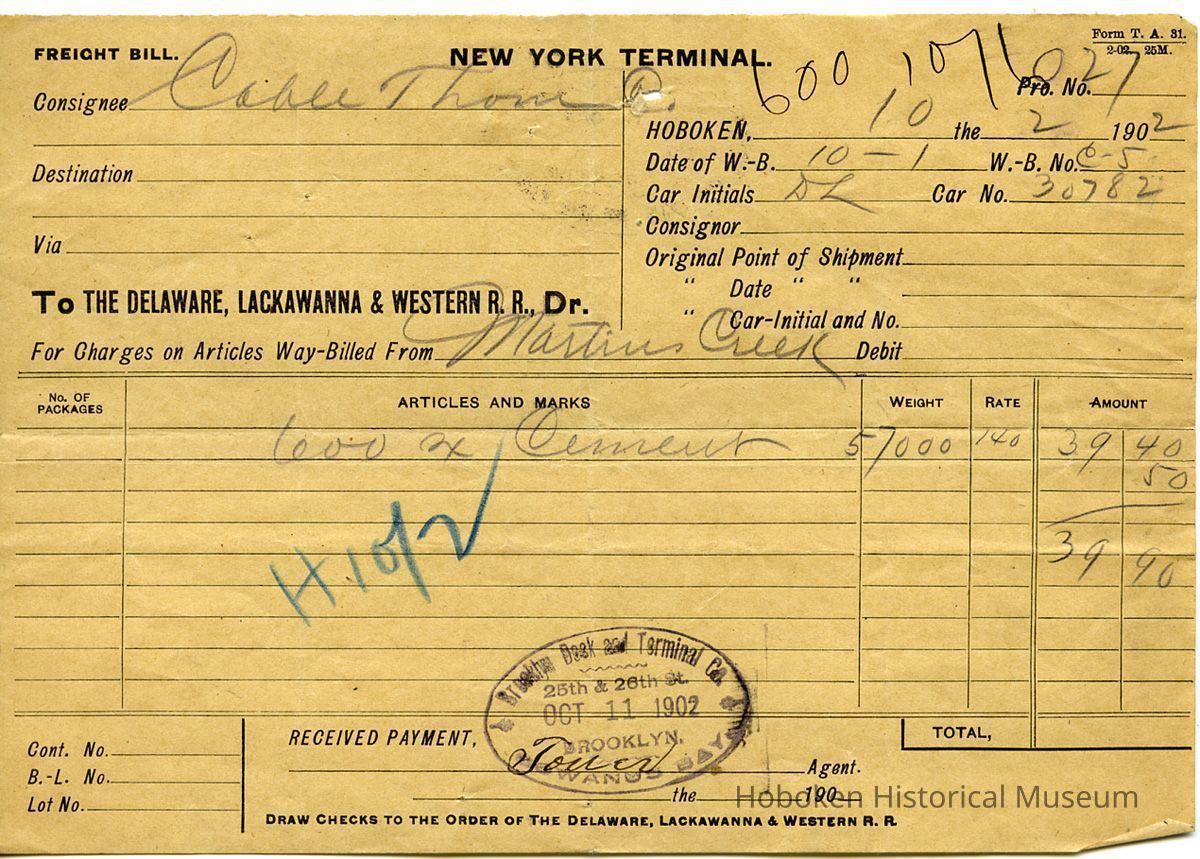 FREIGHT BILL. NEW YORK TERMINAL. Form T. A. 31.
2-02. 25M.
600 1071
Pro. No. 027
Consignee Cable Thom Co.
HOBOKEN, 10 the 2 1902
Date of W.-B. 10 — 1 W.-B. No. C-5
Destination
Car Initials DL Car No. 30782
Consignor
Via
Original Point of Shipment
" Date " "
To THE DELAWARE, LACKAWANNA & WESTERN R. R., Dr.
" Car-Initial and No.
For Charges on Articles Way-Billed From Martins Creek Debit
No. OF PACKAGES ARTICLES AND MARKS WEIGHT RATE AMOUNT
600 x Cement 57000 140 39 40
50
39 90
H 10/2
Brooklyn Dock and Terminal Co.
25th & 26th St.
OCT 11 1902
BROOKLYN,
GOWANUS BAY
RECEIVED PAYMENT,
TOTAL,
Cont. No.
B.-L. No.
Lot No.
Agent.
the 190
DRAW CHECKS TO THE ORDER OF THE DELAWARE, LACKAWANNA & WESTERN R. R.
Hoboken Historical Museum